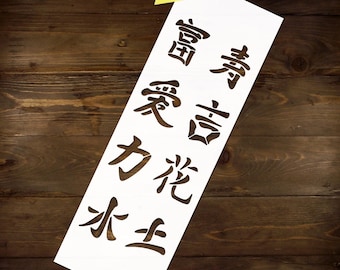 富寿
爱吉
力花
水土